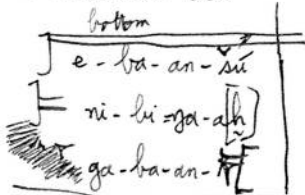 bottom
e - ba - an - sú
ni - bi = ga - ah
ga - ba - an -